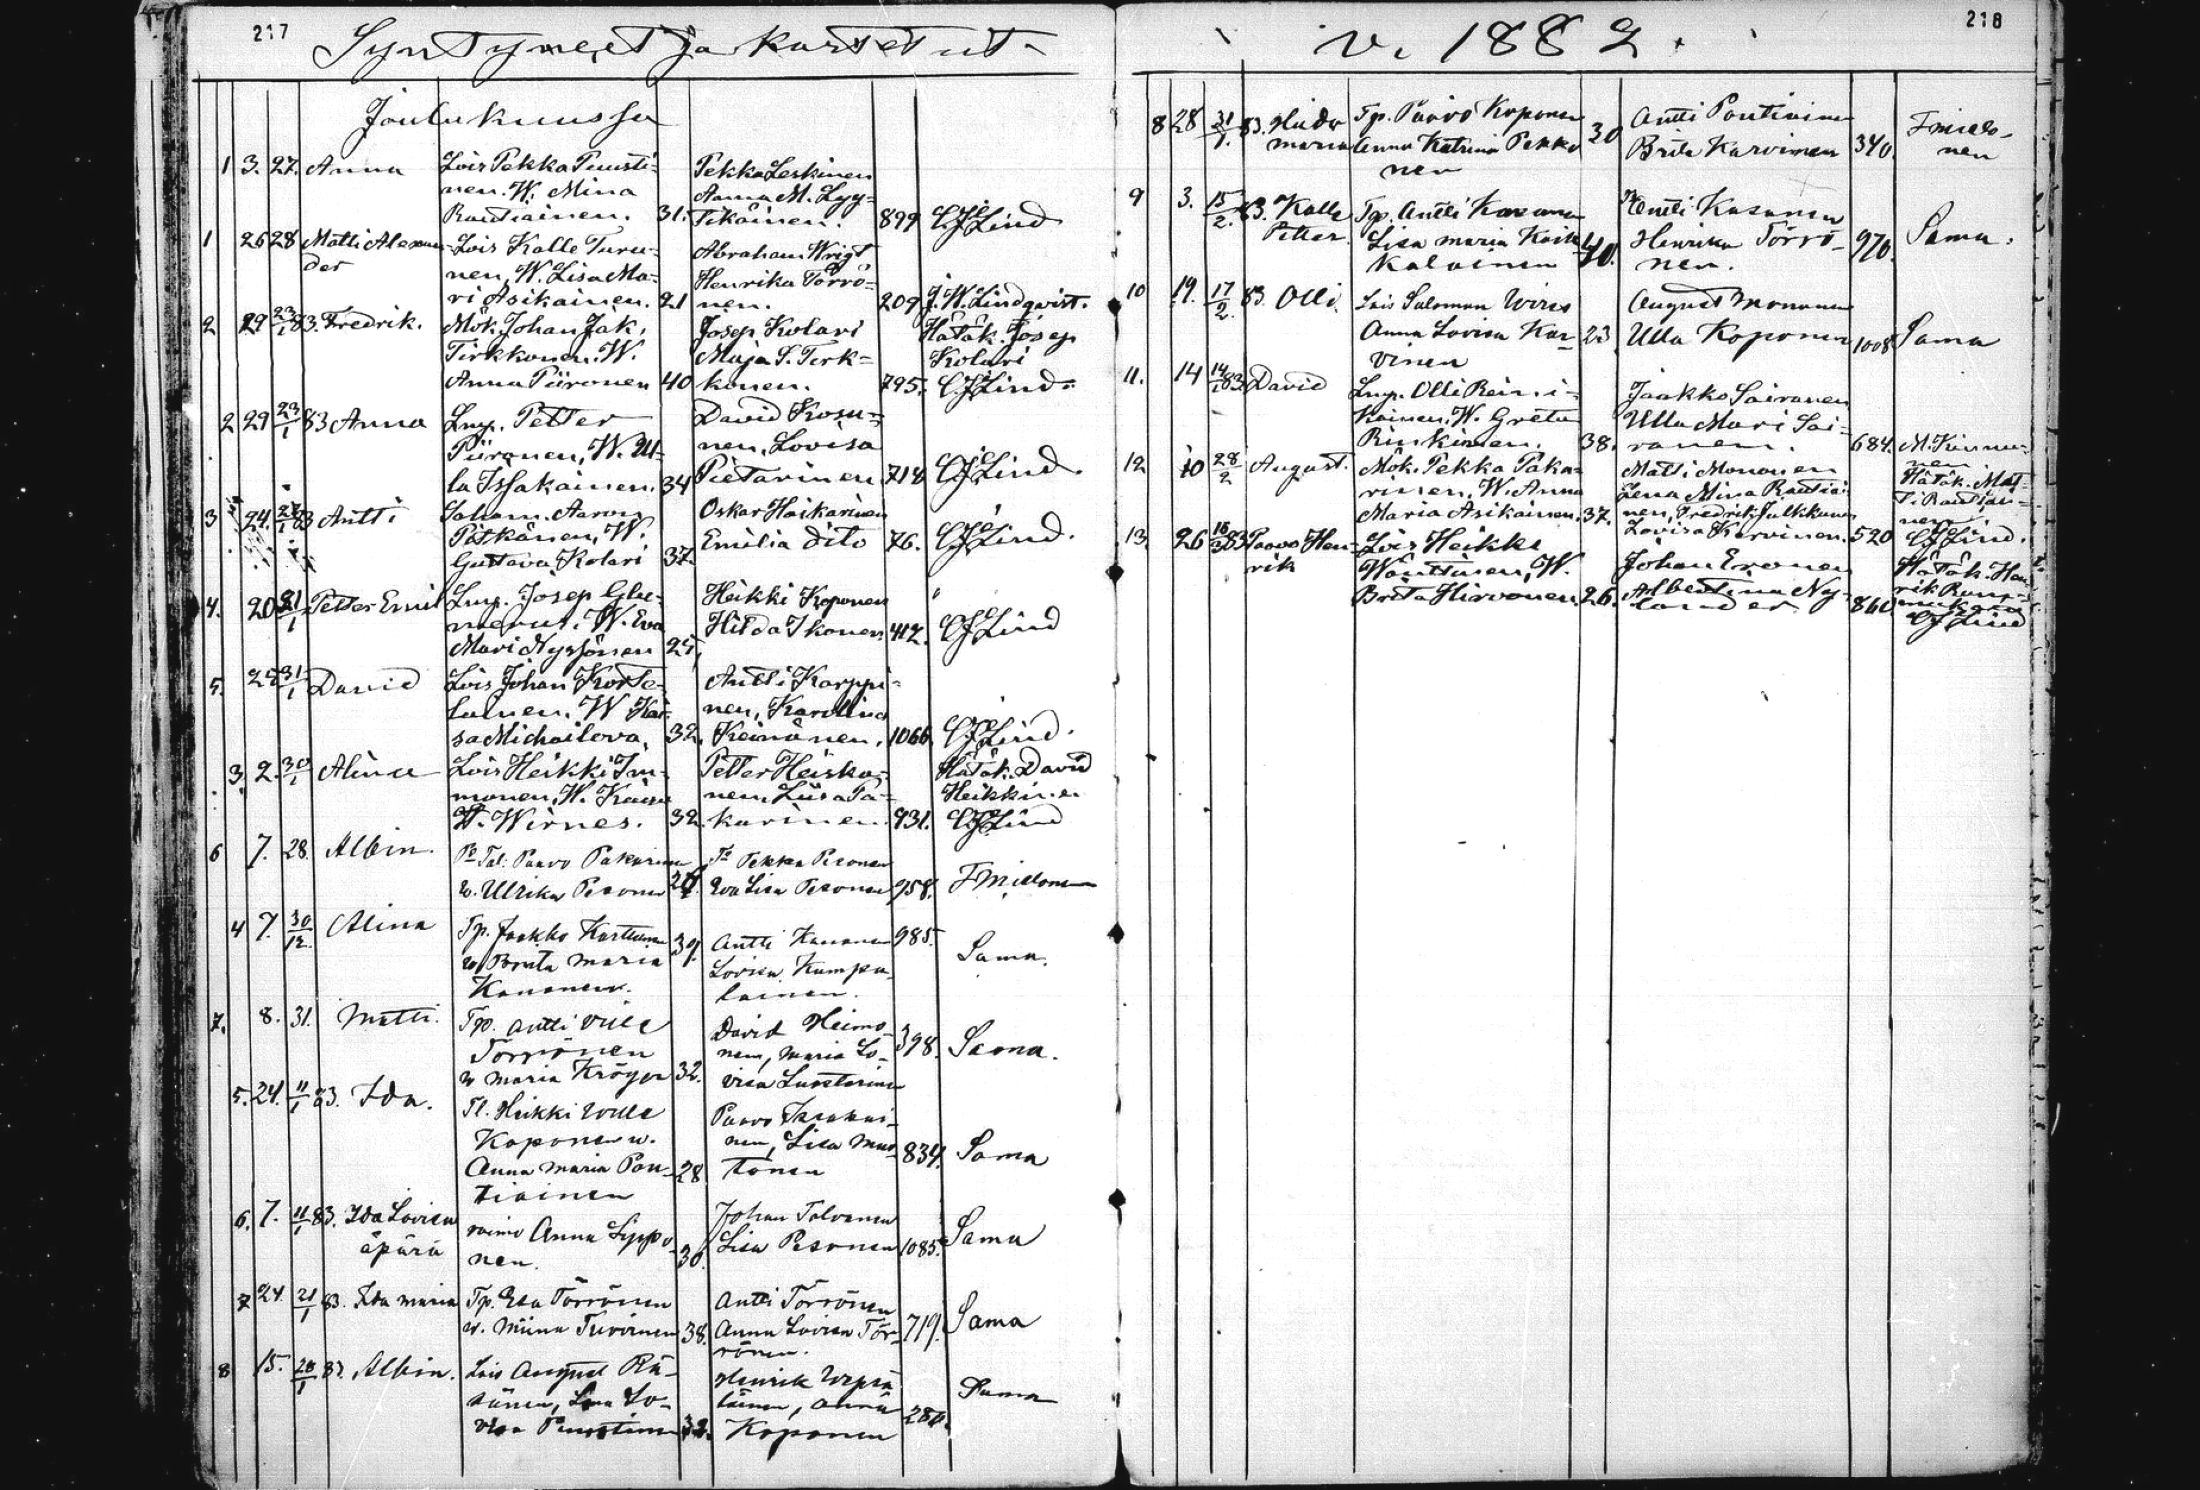 217
Syntyneet ja kastetut
v. 1882.
218
Joulukuussa
1 3. 27. Anna
Lois Pekka Puusti-
nen. W. Mina
Rautiainen. 31.
Pekka Leskinen
Anna M. Lyy-
tikäinen. 899
CJLind
1 26 28 Matti Alexan-
der
Lois Kalle Turu-
nen, W. Lisa Ma-
ri Asikainen. 21
Abraham Wrigt
Henrika Törrö-
nen. 209
J. W. Lindqvist.
2 29 23/1 83. Fredrik.
Mök. Johan Jak.
Tirkkonen. W.
Anna Piironen 40
Josep Kolari
Maja S. Tirk-
konen. 795.
Hätäk. Josep
Kolari
CJLind
2 29 23/1 83 Anna
Lmp. Petter
Piironen, W. Ul-
la Issakainen. 34
David Kosu-
nen, Lovisa
Pietarinen 718
CJLind.
3 24. 27/1 83 Antti
Saham. Aaron
Pitkänen, W.
Gustava Kolari 37.
Oskar Haikarinen
Emilia dito 76.
CJLind.
4. 20 21/1 Petter Emil
Lmp. Josep Glu-
merus. W. Eva
Mari Nyssönen 25,
Heikki Koponen
Hilda Ikonen 412.
CJLind
5. 25 31/1 David
Lois Johan Korte-
lainen. W Kai-
sa Michailova, 32.
Antti Karppi-
nen, Karolina
Keinänen. 1066.
CJLind.
3. 2. 30/1 Alina
Lois Heikki Im-
monen, W. Kaisa
H. Wirnes. 32.
Petter Heiska-
nen, Liisa Pa-
karinen 931.
Hätäk. David
Heikkinen
CJLind
6 7. 28. Albin.
Tal. Paavo Pakarinen
w. Ulrika Pesonen
Pekka Pesonen
Eva Lisa Pesonen 958.
4 7. 30/12. Alina
Tp. Jaakko Karttunen 39.
w Brita Maria
Kananen.
Antti Kananen 985.
Lovisa Kumpu-
lainen.
Sama.
7. 8. 31. Matti.
Tp. Antti Ville
Törrönen
w Maria Kröger 32.
David Heimo-
nen, Maria Lo- 398.
visa
Sama.
5. 24. 11/1 83. Ida.
Tl. Heikki Wille
Koponen w.
Anna Maria Pon-
tiainen 28
Paavo Issakai-
nen, Lisa Mus-
tonen 834.
Sama
6. 7. 11/1 83. Ida Lovisa
äpärä
vaimo Anna Lippo-
nen. 30.
Johan Tolvanen
Lisa Pesonen 1085.
Sama
7 24. 21/1 83. Ida Maria
Tp. Esa Törrönen
w. Miina Turunen 38.
Antti Törrönen
Anna Lovisa Tör-
rönen. 719.
Sama
8 15. 28/1 83. Albin.
Lois August Rä-
sänen, Lena Lo-
visa Puustinen
Henrik Wepsä-
läinen, Anna
Koponen
Sama
8 28 31/1 83. Hilda
Maria
Tp. Paavo Koponen
Anna Katrina Pekko-
nen 30
Antti Pontiainen
Brita Karvinen 340.
9 3. 15/2. 83. Kalle
Petter.
Tp. Antti Kasanen
Lisa Maria Koik-
kalainen 40.
Antti Kasanen
Henrika Törrö-
nen. 970.
Sama.
10 19. 17/2. 83. Olli.
Lois Salomon Wires
Anna Lovisa Kar-
vinen 23
August Mononen
Ulla Koponen 1008.
Sama
11. 14 14/1 83 David
Lmp. Olli Reini-
kainen. W. Greta
Rinkinen. 38.
Jaakko Sairanen
Ulla Mari Sai-
ranen. 684.
M. Kinnu-
nen
12. 10 28/2 August.
Mök. Pekka Paka-
rinen. W. Anna
Maria Asikainen. 37.
Matti Mononen
Lena Mina Rautiai-
nen, Fredrik Julkkunen
Lovisa Karvinen. 520
Hätäk. Mat-
ti Rautiai-
nen
CJLind.
13. 26 18/3 83 Paavo Hen-
rik
Lois Heikki
Wänttinen, W.
Brita Hirvonen. 26.
Johan Eronen
Albertina Ny-
lander 860
Hätäk. Hen-
rik
CJLind